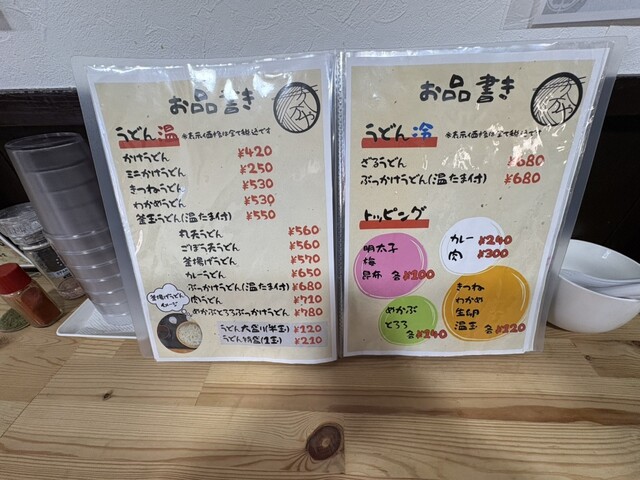 お品書き
うどん温 ※表示価格は全て税込です
かけうどん ¥420
ミニかけうどん ¥250
きつねうどん ¥530
わかめうどん ¥530
釜玉うどん(温たま付) ¥550
丸天うどん ¥560
ごぼう天うどん ¥560
釜揚げうどん ¥570
カレーうどん ¥650
ぶっかけうどん(温たま付) ¥680
肉うどん ¥710
めかぶとろろぶっかけうどん ¥780
釜揚げうどん
イメージ
うどん大盛り(半玉) ¥120
うどん特盛(1玉) ¥210
お品書き
うどん冷 ※表示価格は全て税込です
ざるうどん ¥680
ぶっかけうどん(温たま付) ¥680
トッピング
明太子
梅
昆布 各¥100
カレー ¥240
肉 ¥300
めかぶ
とろろ 各¥140
きつね
わかめ
生卵
温玉 各¥120